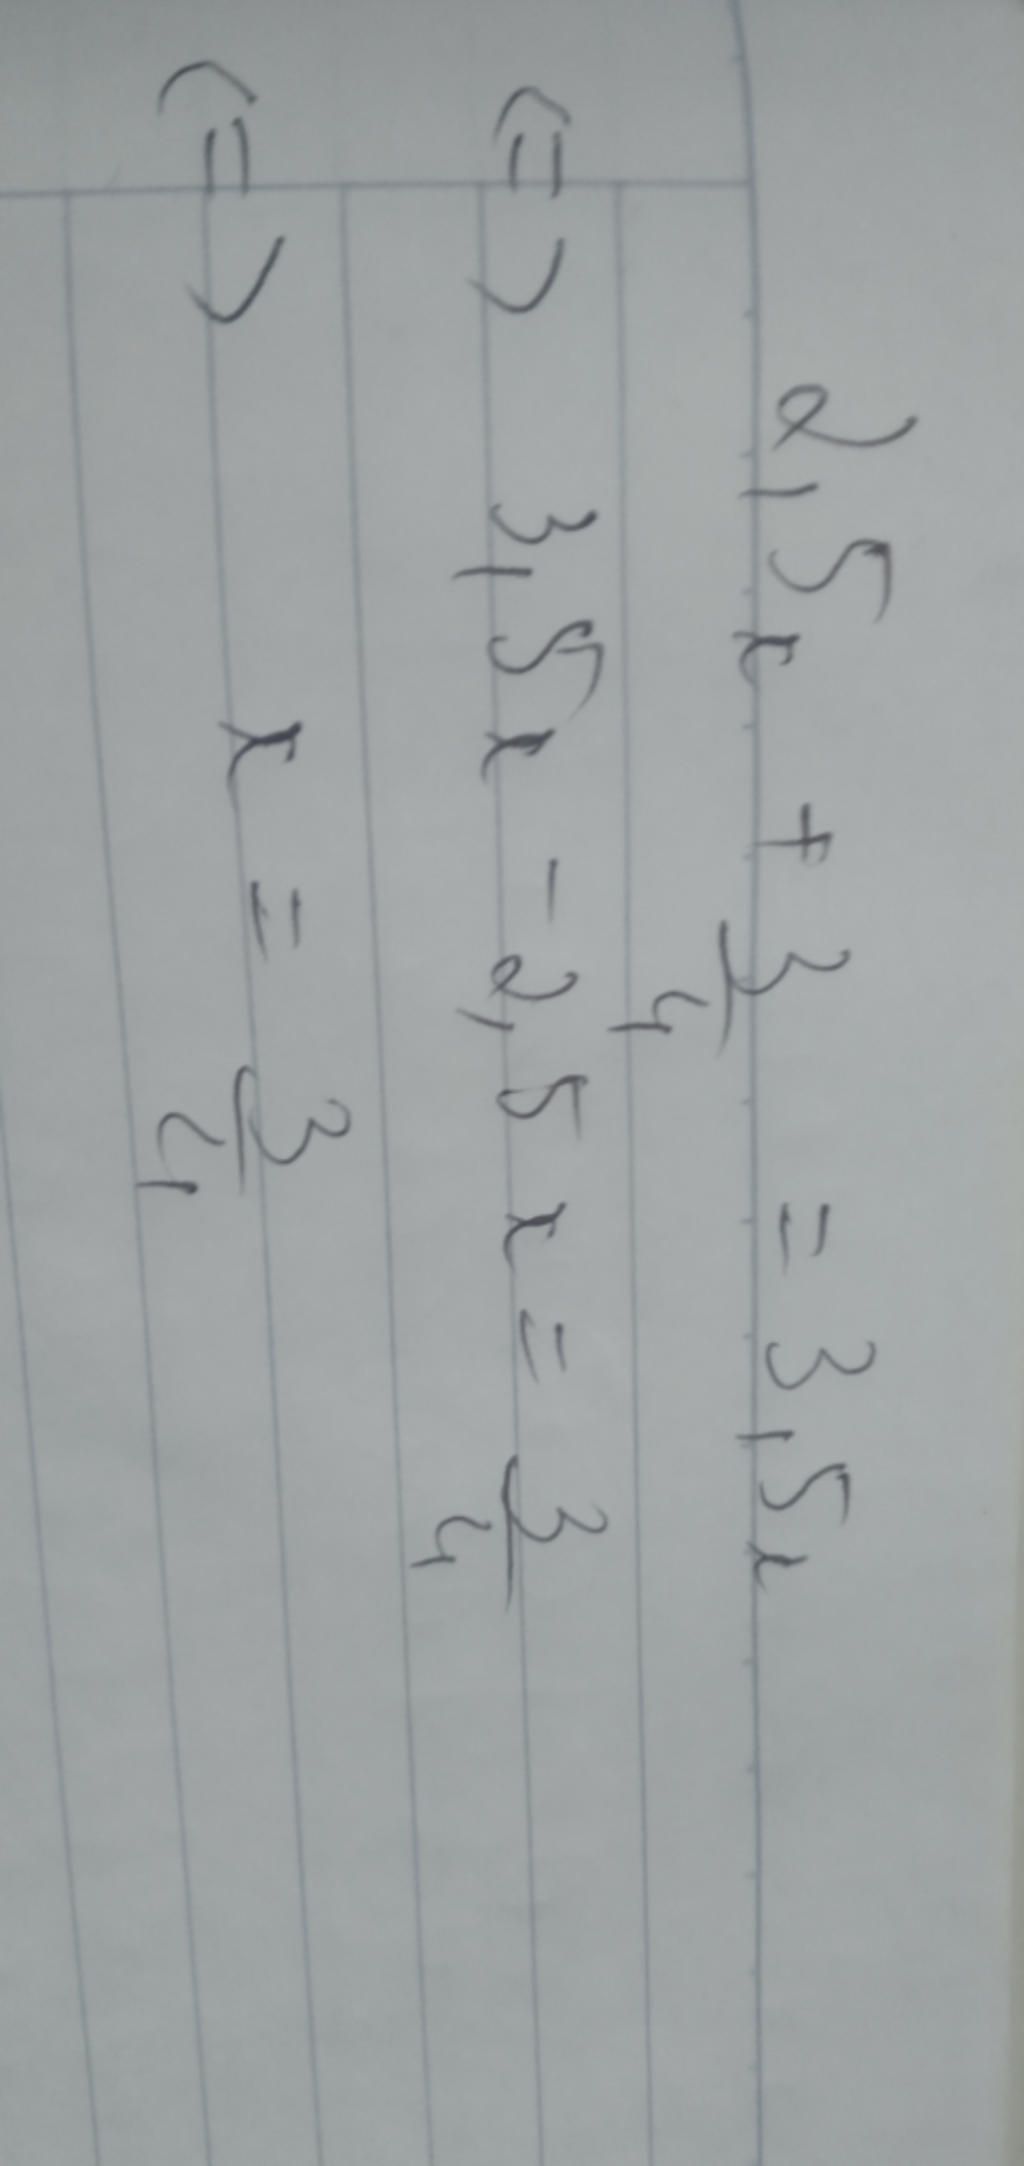 2,5x + 3/4 = 3,5x
<=> 3,5x - 2,5x = 3/4
<=> x = 3/4